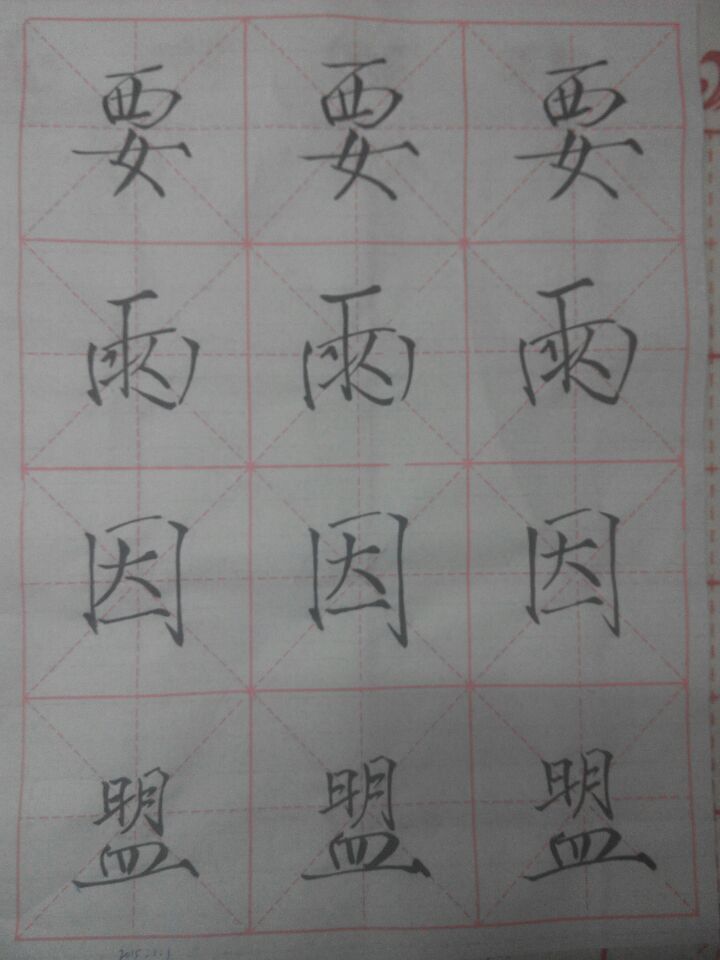 要要要
雨雨雨
因因因
盟盟盟